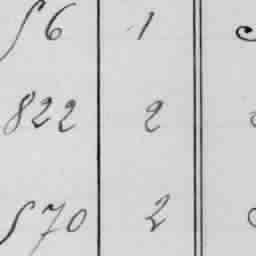 56 1
822 2
570 2